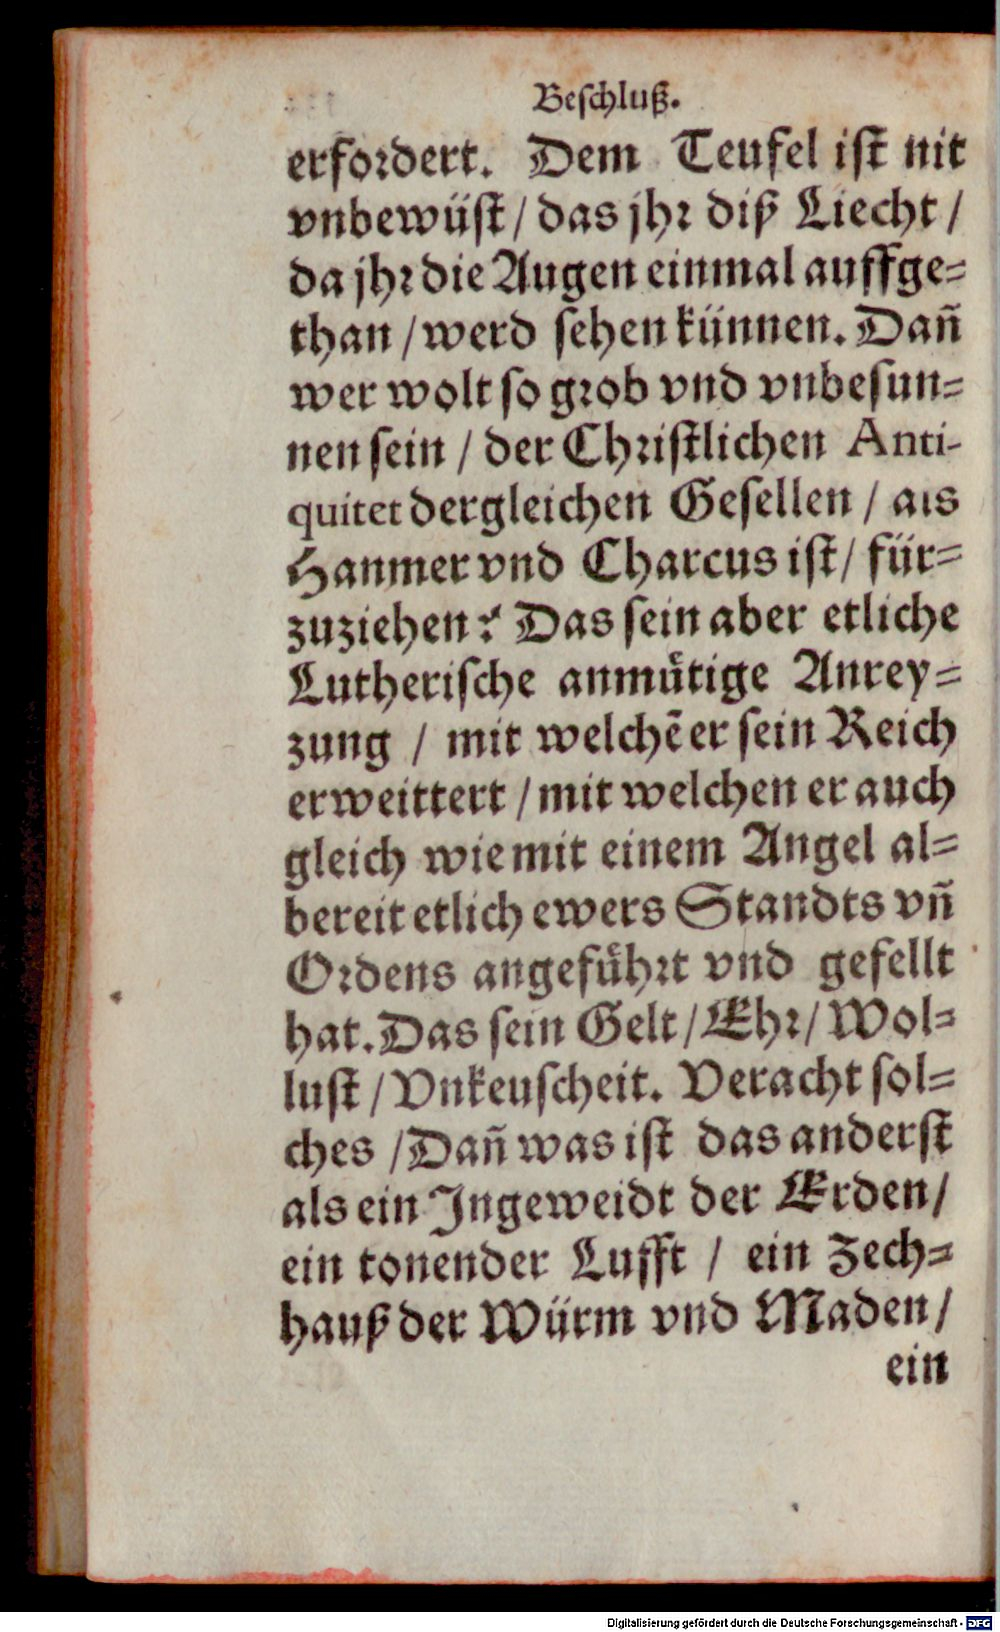 Beschluß.
erfordert. Dem Teufel ist nit
vnbewüst / das jhr diß Liecht /
da jhr die Augen einmal auffge=
than / werd sehen künnen. Dañ
wer wolt so grob vnd vnbesun=
nen sein / der Christlichen Anti-
quitet dergleichen Gesellen / als
Hanmer vnd Charcus ist / für=
zuziehen? Das sein aber etliche
Lutherische anmuͤtige Anrey=
zung / mit welchẽ er sein Reich
erweittert / mit welchen er auch
gleich wie mit einem Angel al=
bereit etlich ewers Standts vñ
Ordens angefuͤhrt vnd gefellt
hat. Das sein Gelt / Ehr / Wol=
lust / Vnkeuscheit. Veracht sol=
ches / Dañ was ist das anderst
als ein Ingeweidt der Erden /
ein tonender Lufft / ein Zech=
hauß der Würm vnd Maden /
ein
Digitalisierung gefördert durch die Deutsche Forschungsgemeinschaft - DFG